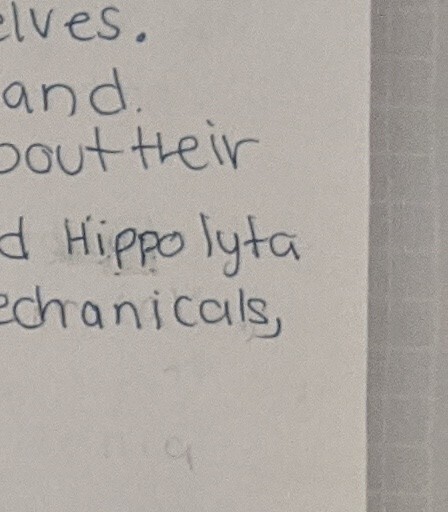 elves.
and.
bout their
d Hippolyta
echanicals,